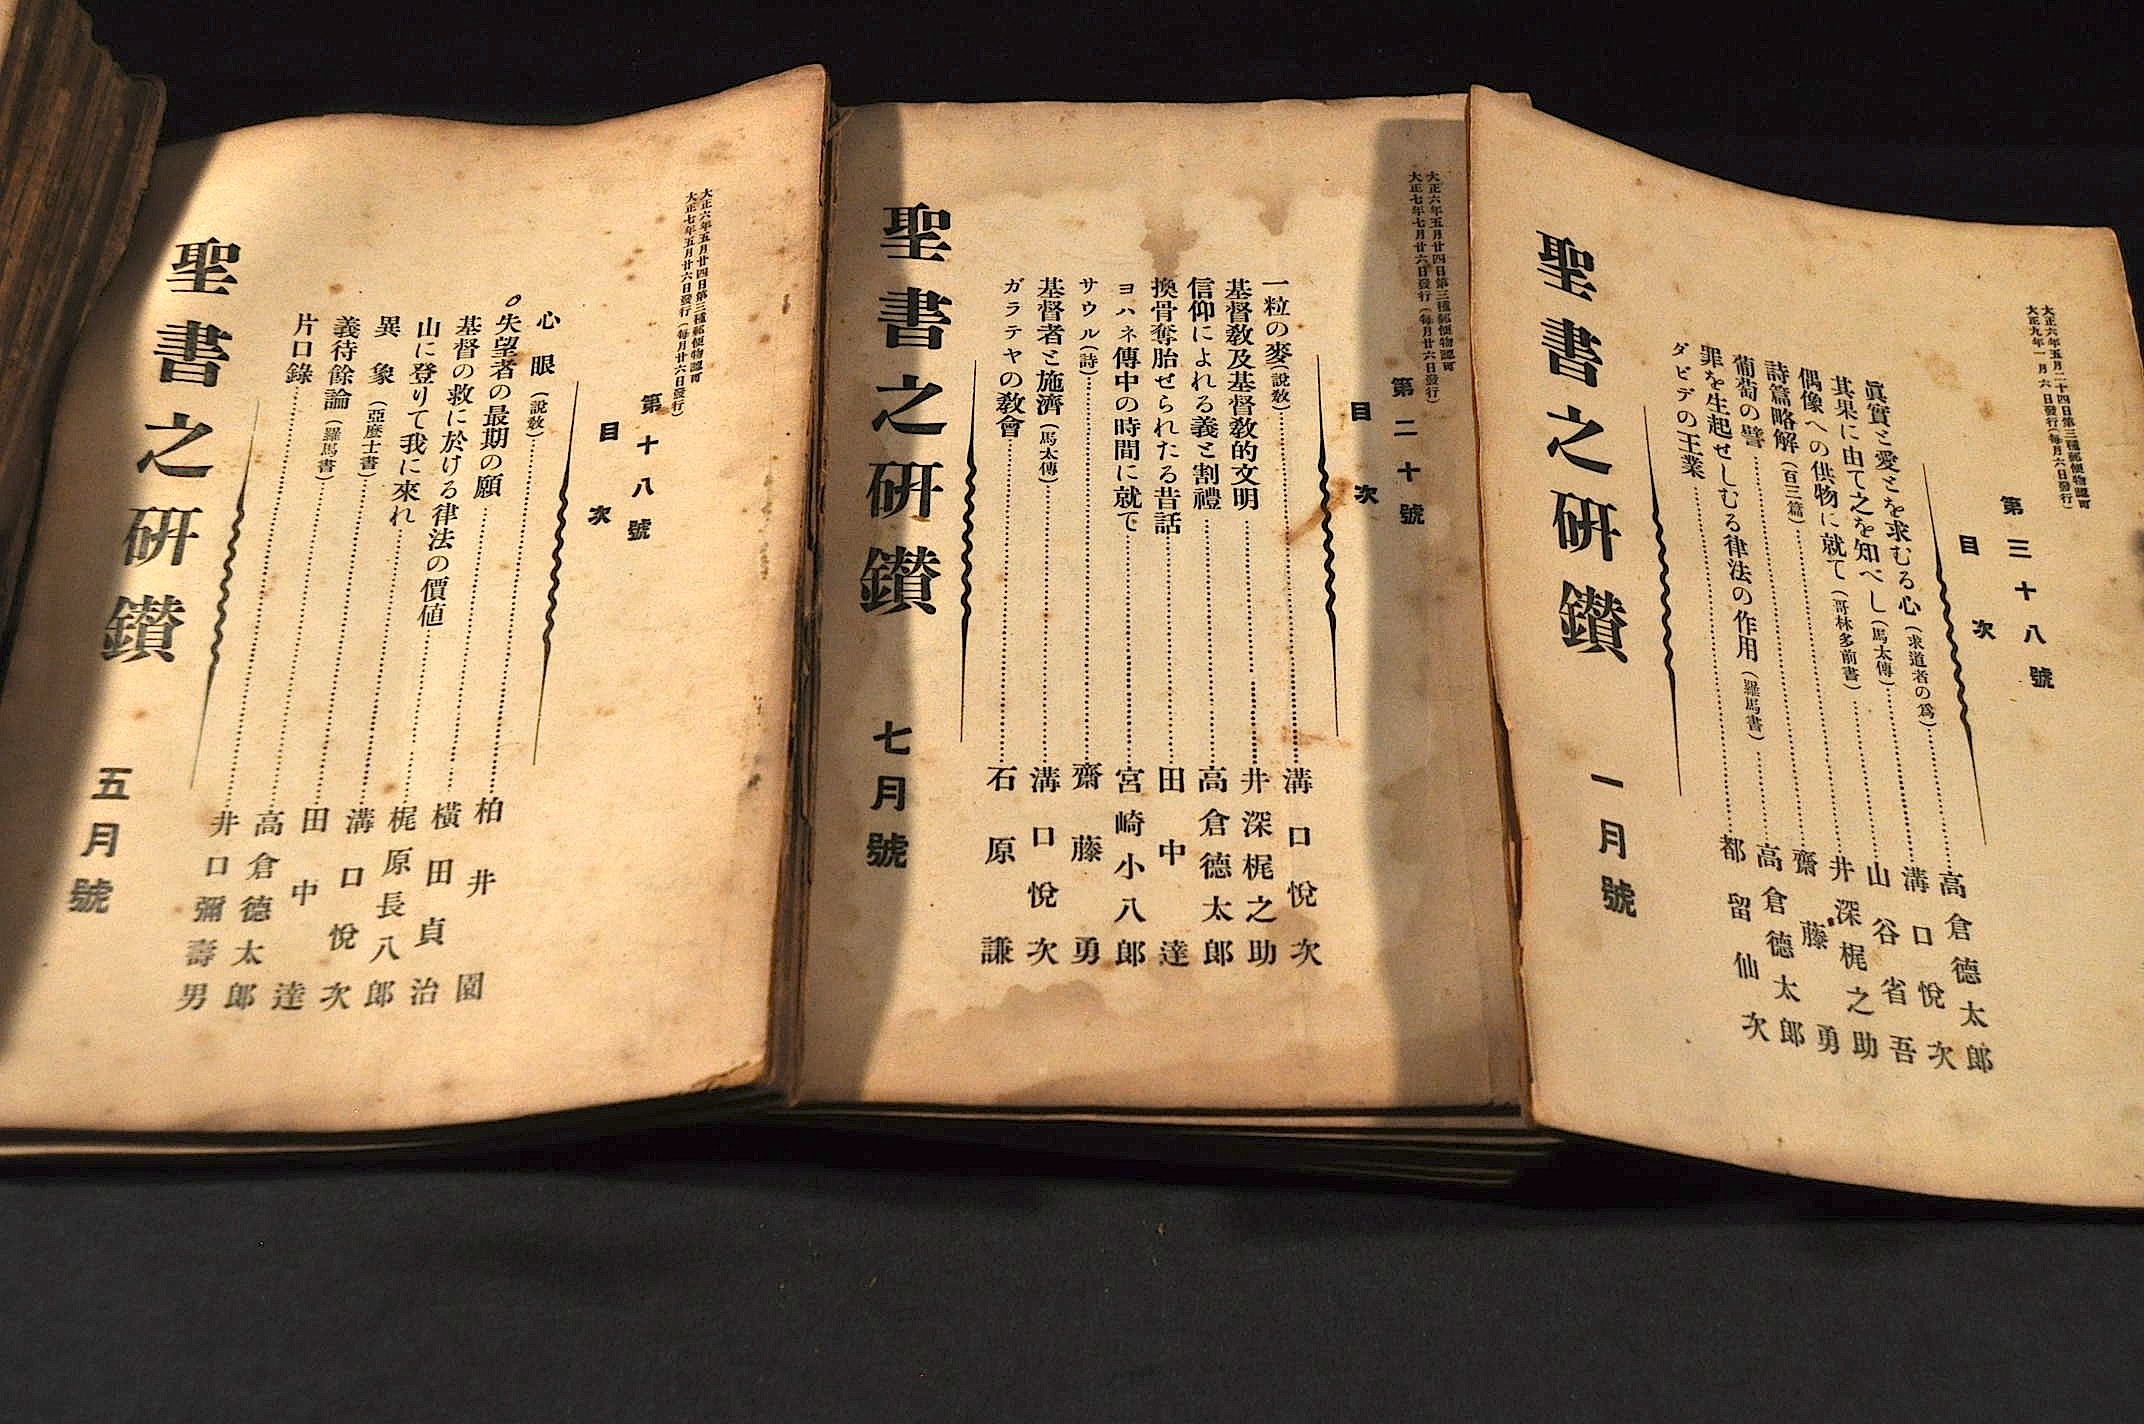 大正六年五月廿四日第三種郵便物認可
大正七年五月廿六日發行(毎月廿六日發行)
第十八號
目次
心眼(說敎)……柏井園
失望者の最期の願……横田貞治
基督の救に於ける律法の價値……梶原長八郎
山に登りて我に來れ……溝口悅次
異象(亞麼士書)……田中達
義待餘論(羅馬書)……高倉德太郎
片口錄……井口彌壽男
聖書之硏鑽 五月號
大正六年五月廿四日第三種郵便物認可
大正七年七月廿六日發行(毎月廿六日發行)
第二十號
目次
一粒の麥(說敎)……溝口悅次
基督敎及基督敎的文明……井深梶之助
信仰によれる義と割禮……高倉德太郎
換骨奪胎せられたる昔話……田中達
ヨハネ傳中の時間に就て……宮崎小八郎
サウル(詩)……齋藤勇
基督者と施濟(馬太傳)……溝口悅次
ガラテヤの敎會……石原謙
聖書之硏鑽 七月號
大正六年五月二十四日第三種郵便物認可
大正九年一月六日發行(毎月六日發行)
第三十八號
目次
眞實と愛とを求むる心(求道者の爲)……高倉德太郎
其果に由て之を知べし(馬太傳)……溝口悅次
偶像への供物に就て(哥林多前書)……山谷省吾
詩篇略解(百三篇)……井深梶之助
葡萄の譬……齋藤勇
罪を生起せしむる律法の作用(羅馬書)……高倉德太郎
ダビデの王業……都留仙次
聖書之硏鑽 一月號